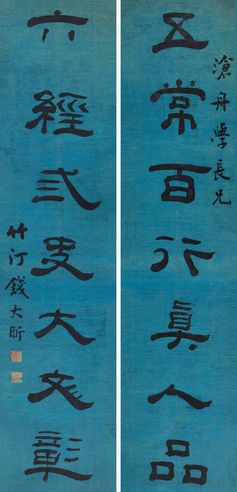 滄舟學長兄
五常百行眞人品
六經弎史大彣彰
竹汀錢大昕